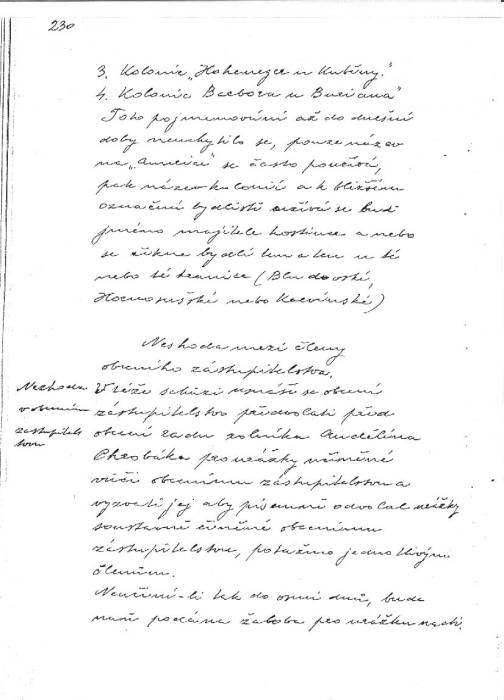 230
3. Kolonie „Hohenegger u Kuběny."
4. Kolonie Barbora u Buriana"
Toto pojmenování až do dnešní
doby neuchytilo se, pouze název
na „ " se často používá,
pak název kolonií a k bližšímu
označení bydliště užívá se buď
jméno majitele hostince anebo
se řekne bydlí ten a ten u té
nebo té hranice (Bludovské,
Hornosušské nebo Karvinské)
Neshoda mezi členy
obecního zastupitelstva.
Neshoda
v obecním
zastupitels
tvu
V téže schůzi usnáší se obecní
zastupitelstvo předvolati před
obecní radu rolníka Andělína
Chrobáka pro urážky učiněné
vůči obecnímu zastupitelstvu a
vyzvati jej aby písemně odvolal urážky
soustavně činěné obecnímu
zastupitelstvu, potažmo jednotlivým
členům.
Neučiní-li tak do osmi dnů, bude
naň podána žaloba pro urážku na cti.